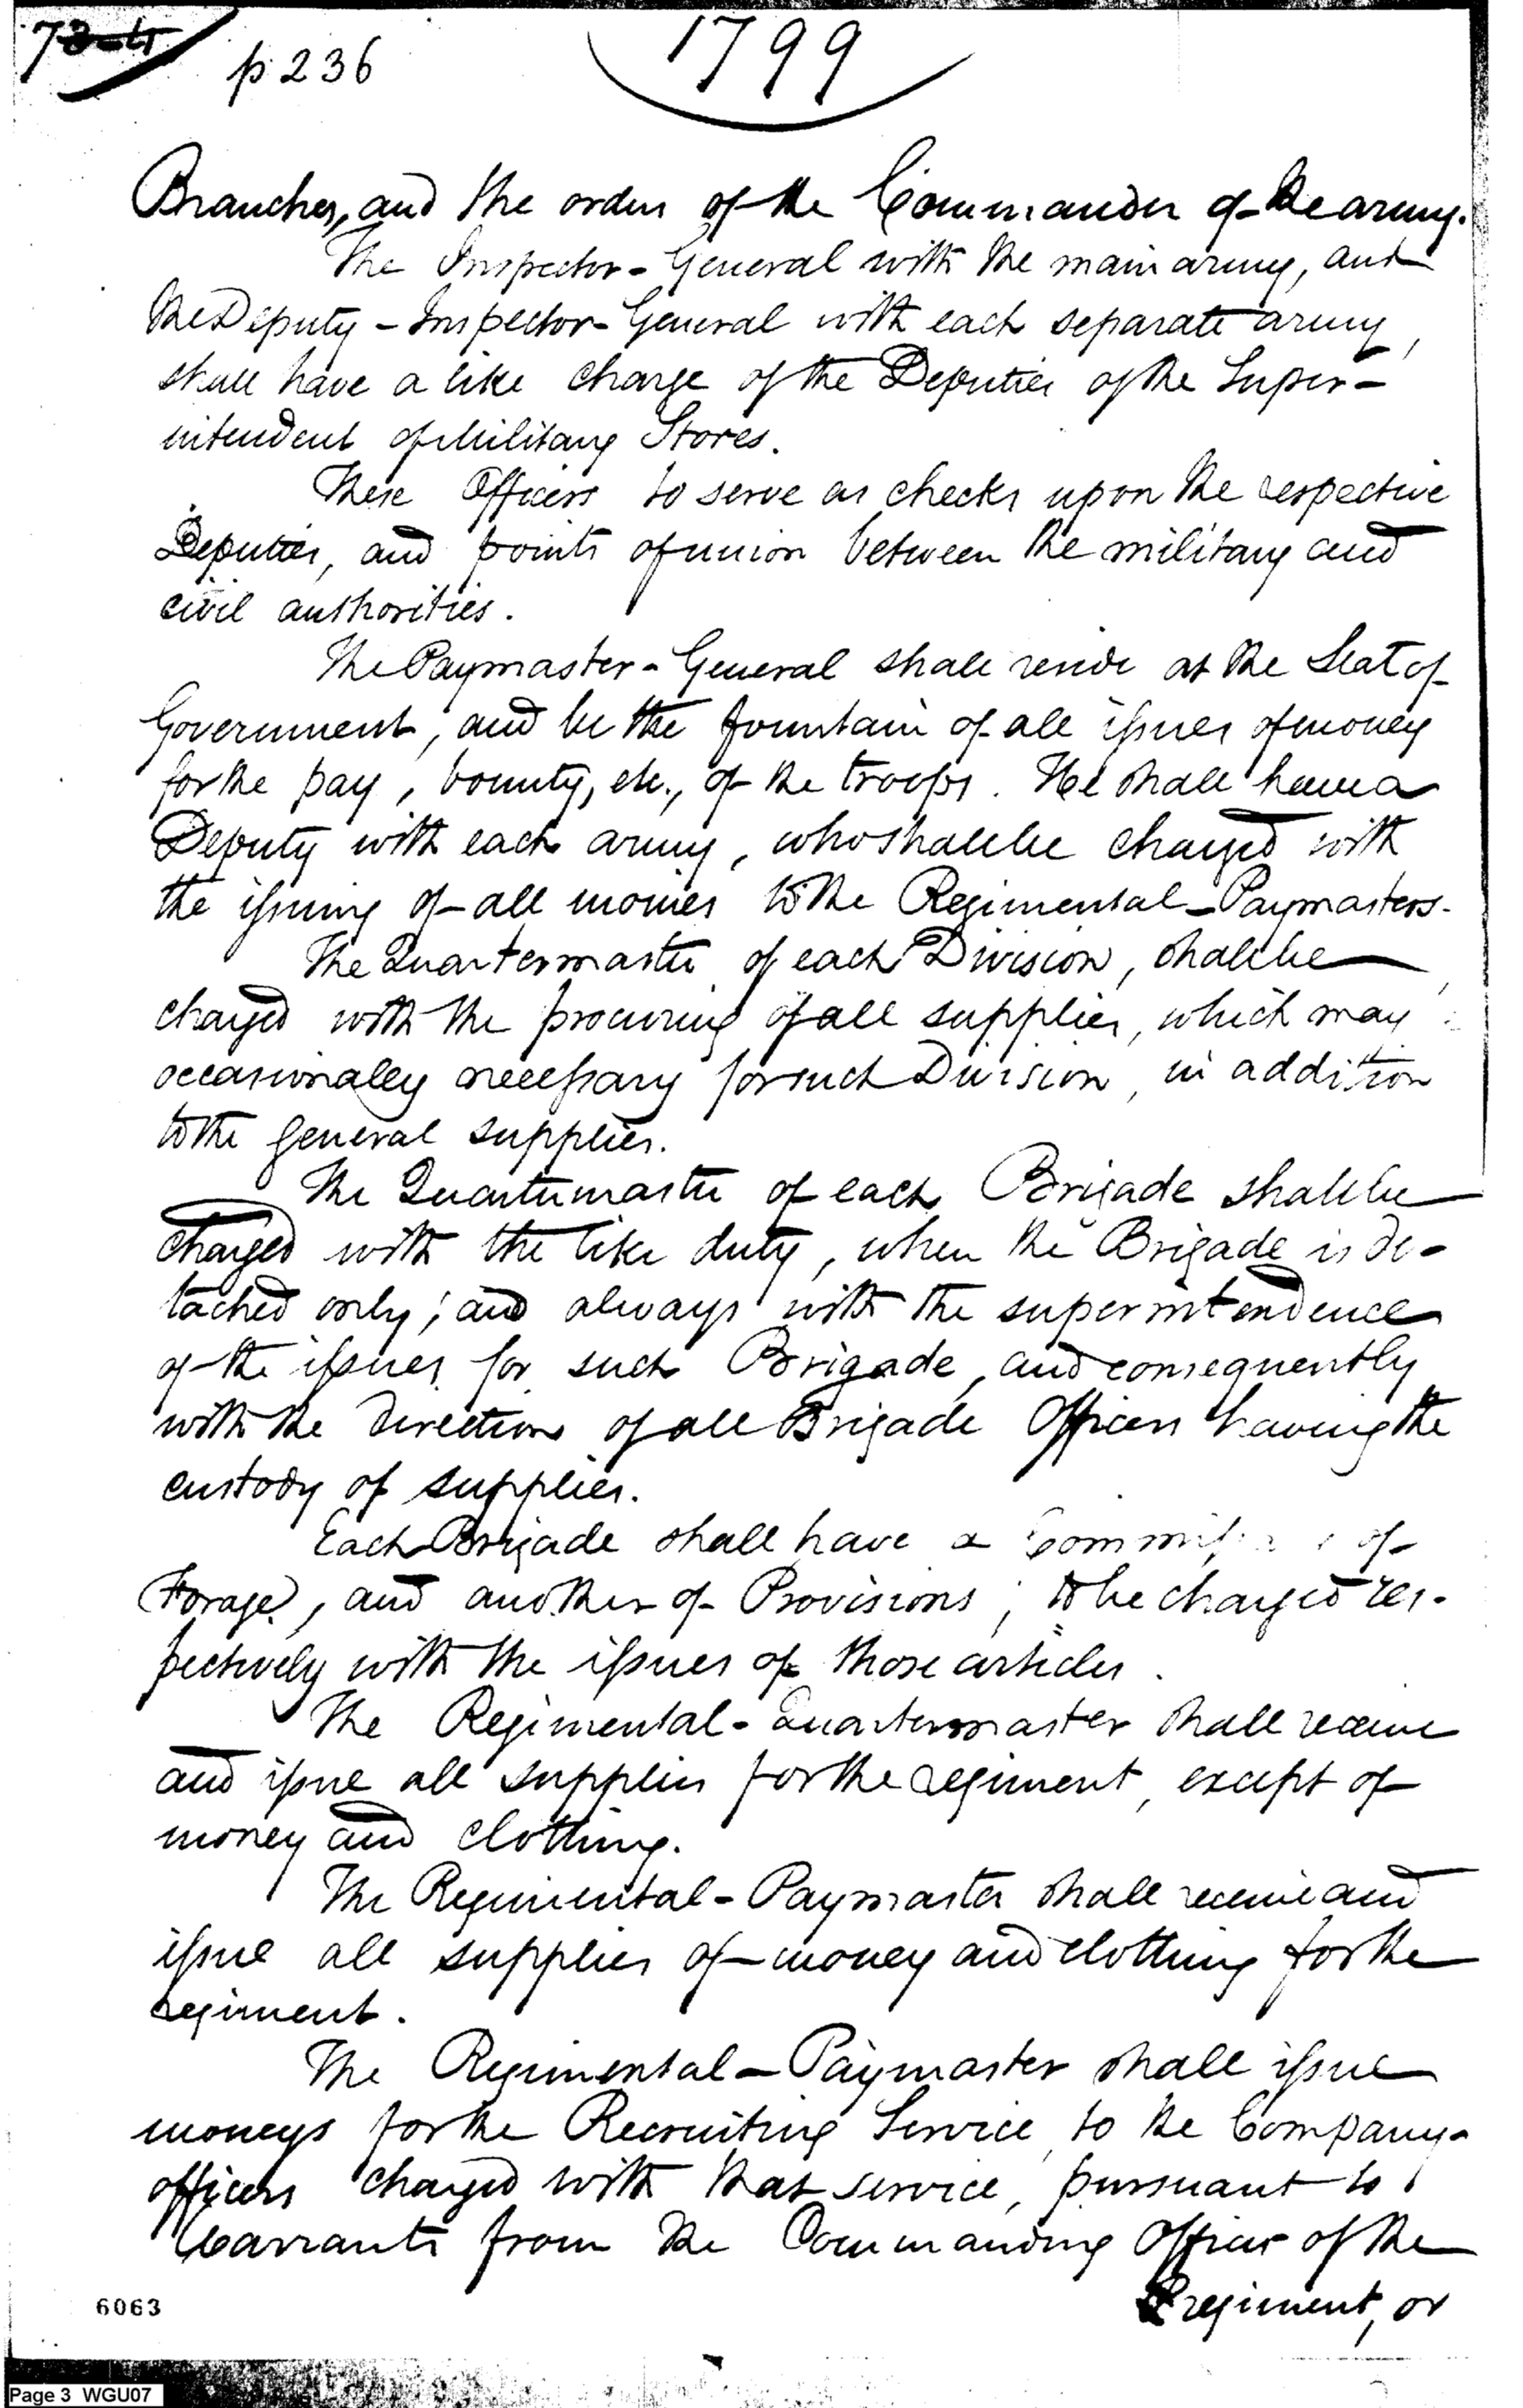 p 236
1799
Branches, and the orders of the Commander of the army.
The Inspector-General with the main army, and
the Deputy-Inspector-General with each separate army,
shall have a like charge of the Deputies of the Super-
intendent of Military Stores.
These Officers to serve as checks upon the respective
Deputies, and points of union between the military and
civil authorities.
The Paymaster-General shall reside at the Seat of
Government, and be the fountain of all issues of money
for the pay, bounty, etc., of the troops. He shall have a
Deputy with each army, who shall be charged with
the issuing of all monies to the Regimental-Paymasters.
The Quartermaster of each Division, shall be
charged with the procuring of all supplies, which may
occasionally necessary for such Division, in addition
to the general supplies.
The Quartermaster of each Brigade shall be
charged with the like duty, when the Brigade is de-
tached only; and always with the superintendence
of the issues for such Brigade, and consequently
with the direction of all Brigade Officers having the
custody of supplies.
Each Brigade shall have a of
Forage, and another of Provisions; to be charged res-
pectively with the issues of those articles.
The Regimental-Quartermaster shall receive
and issue all supplies for the regiment, except of
money and clothing.
The Regimental-Paymaster shall receive and
issue all supplies of money and clothing for the
regiment.
The Regimental-Paymaster shall issue
moneys for the Recruiting Service, to the Company-
officers charged with that service, pursuant to
Warrants from the Commanding Officer of the
regiment, or
6063
Page 3 WGU07